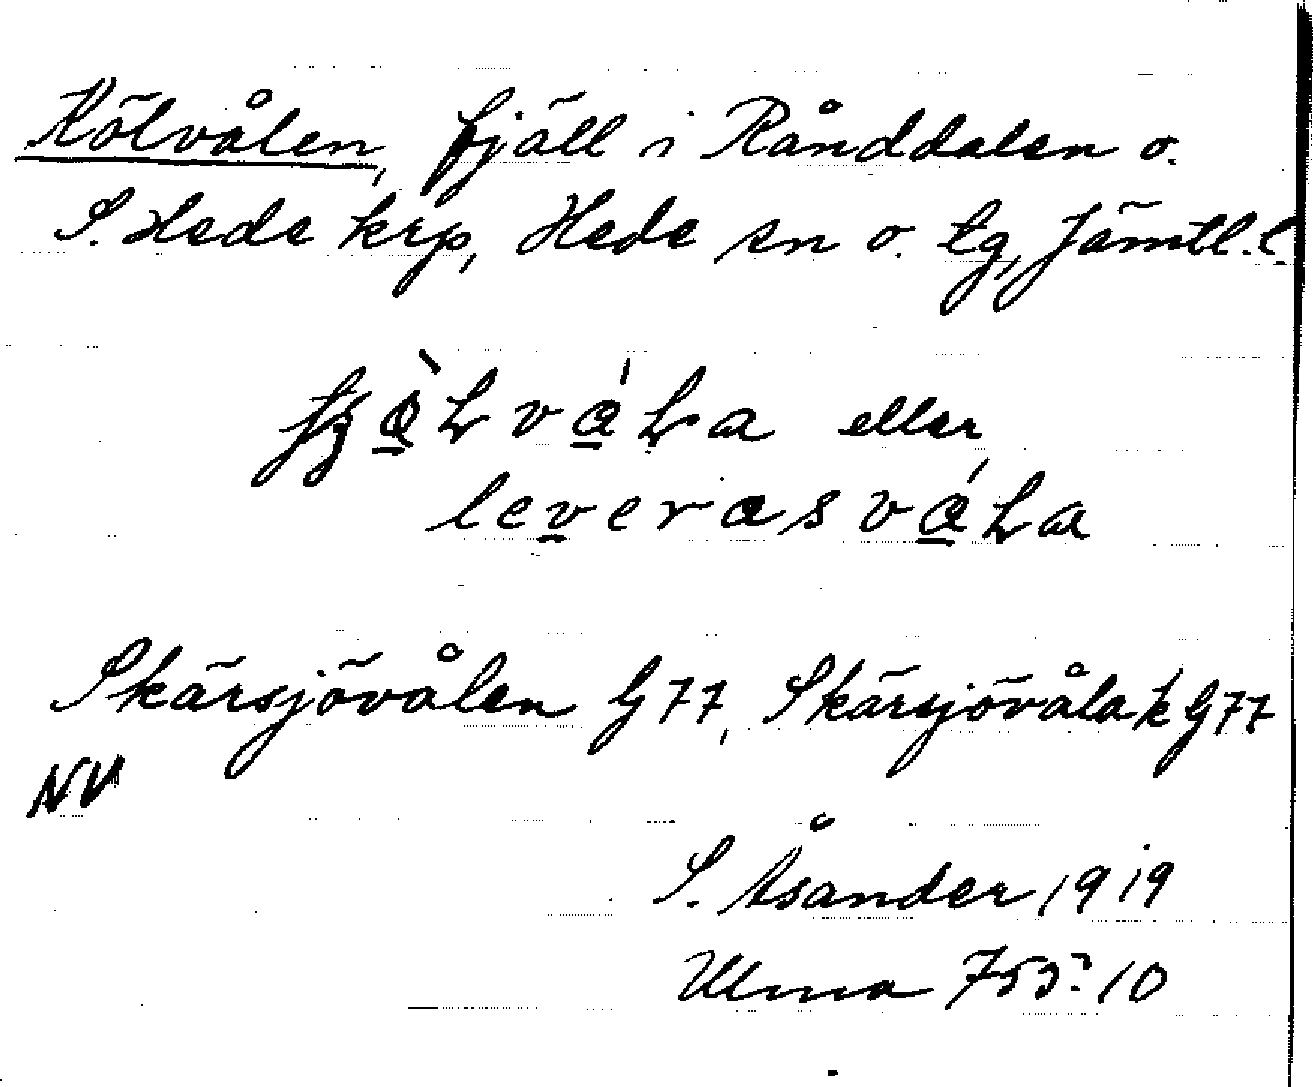 Kölvålen, fjäll i Rånddalen o.
S. Hede krp, Hede sn o. tg, Jämtl. l.
eller
Skärsjövålen G77, Skärsjövåla k G77
NV
S. Åsander 1919
Ulma 755:10